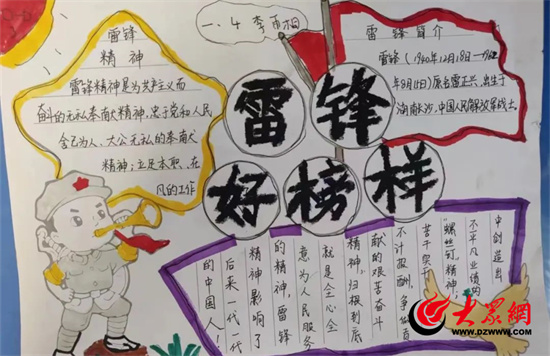 一.4 李雨桐
雷锋
精神
雷锋精神是为共产主义而
奋斗的无私奉献精神,忠于党和人民
舍己为人、大公无私的奉献
精神;立足本职、在
凡的工作
雷锋简介
雷锋(1940年12月18日—1962
年8月15日)原名雷正兴,出生于
湖南长沙,中国人民解放军战士
雷锋
好榜样
中创造出
不平凡业绩的
"螺丝钉精神;
苦干实干
不计报酬,争做贡
献的艰苦奋斗
精神,归根到底
就是全心全
意为人民服务
的精神,雷锋
精神影响了
后来一代一代
的中国人!
大众网
WWW.DZWWW.COM